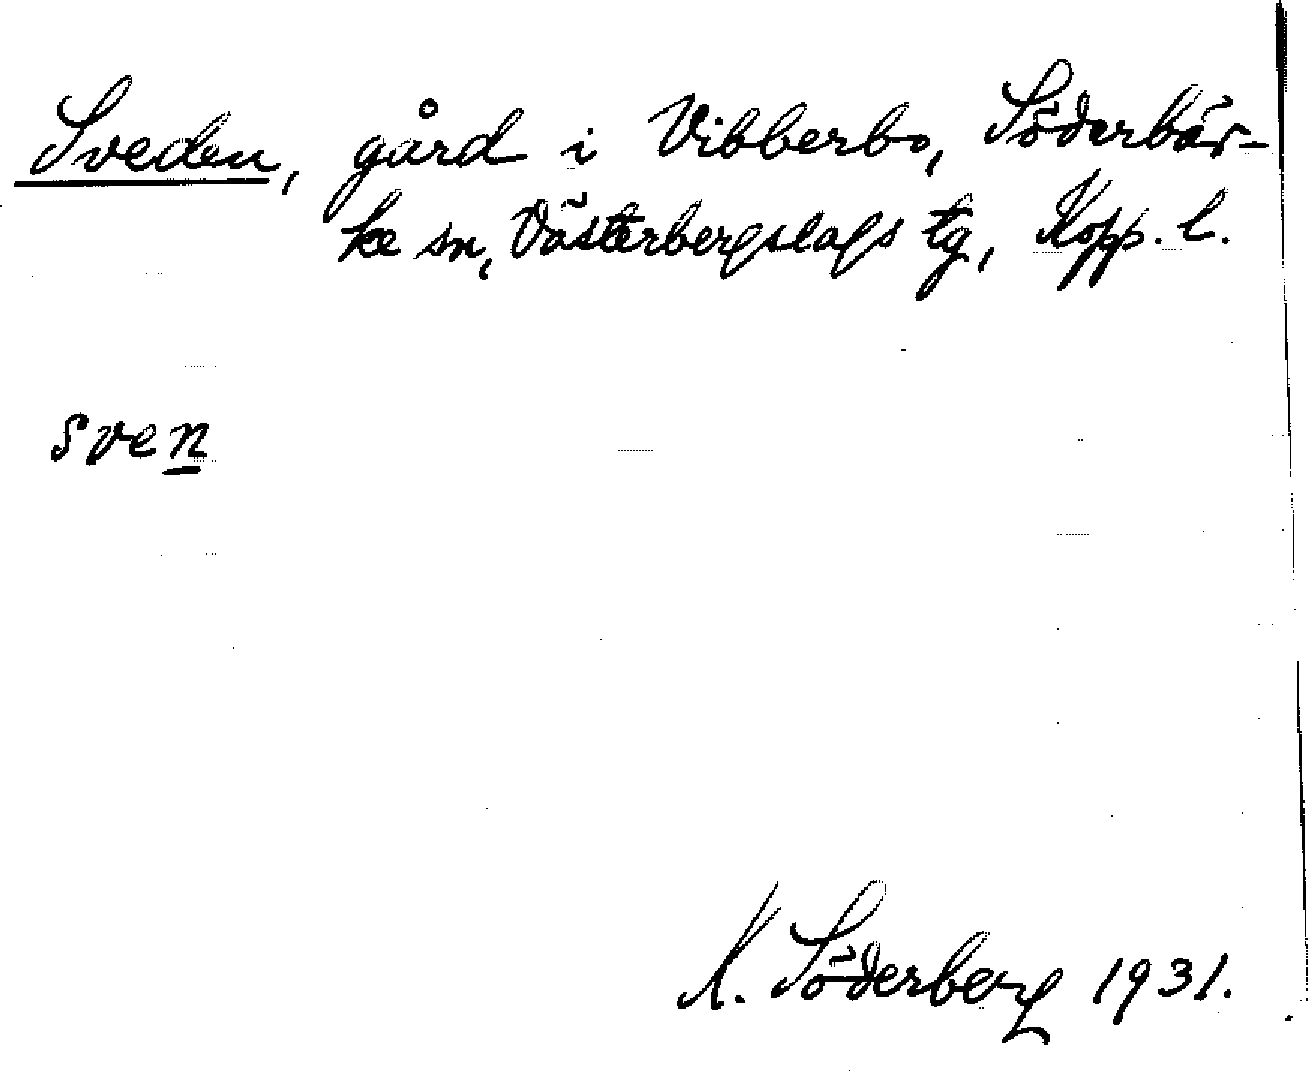 Sveden, gård i Vibberbo, Söderbär-
ke sn, Västerbergslags tg, Kopp. l.
sven
K. Söderberg 1931.